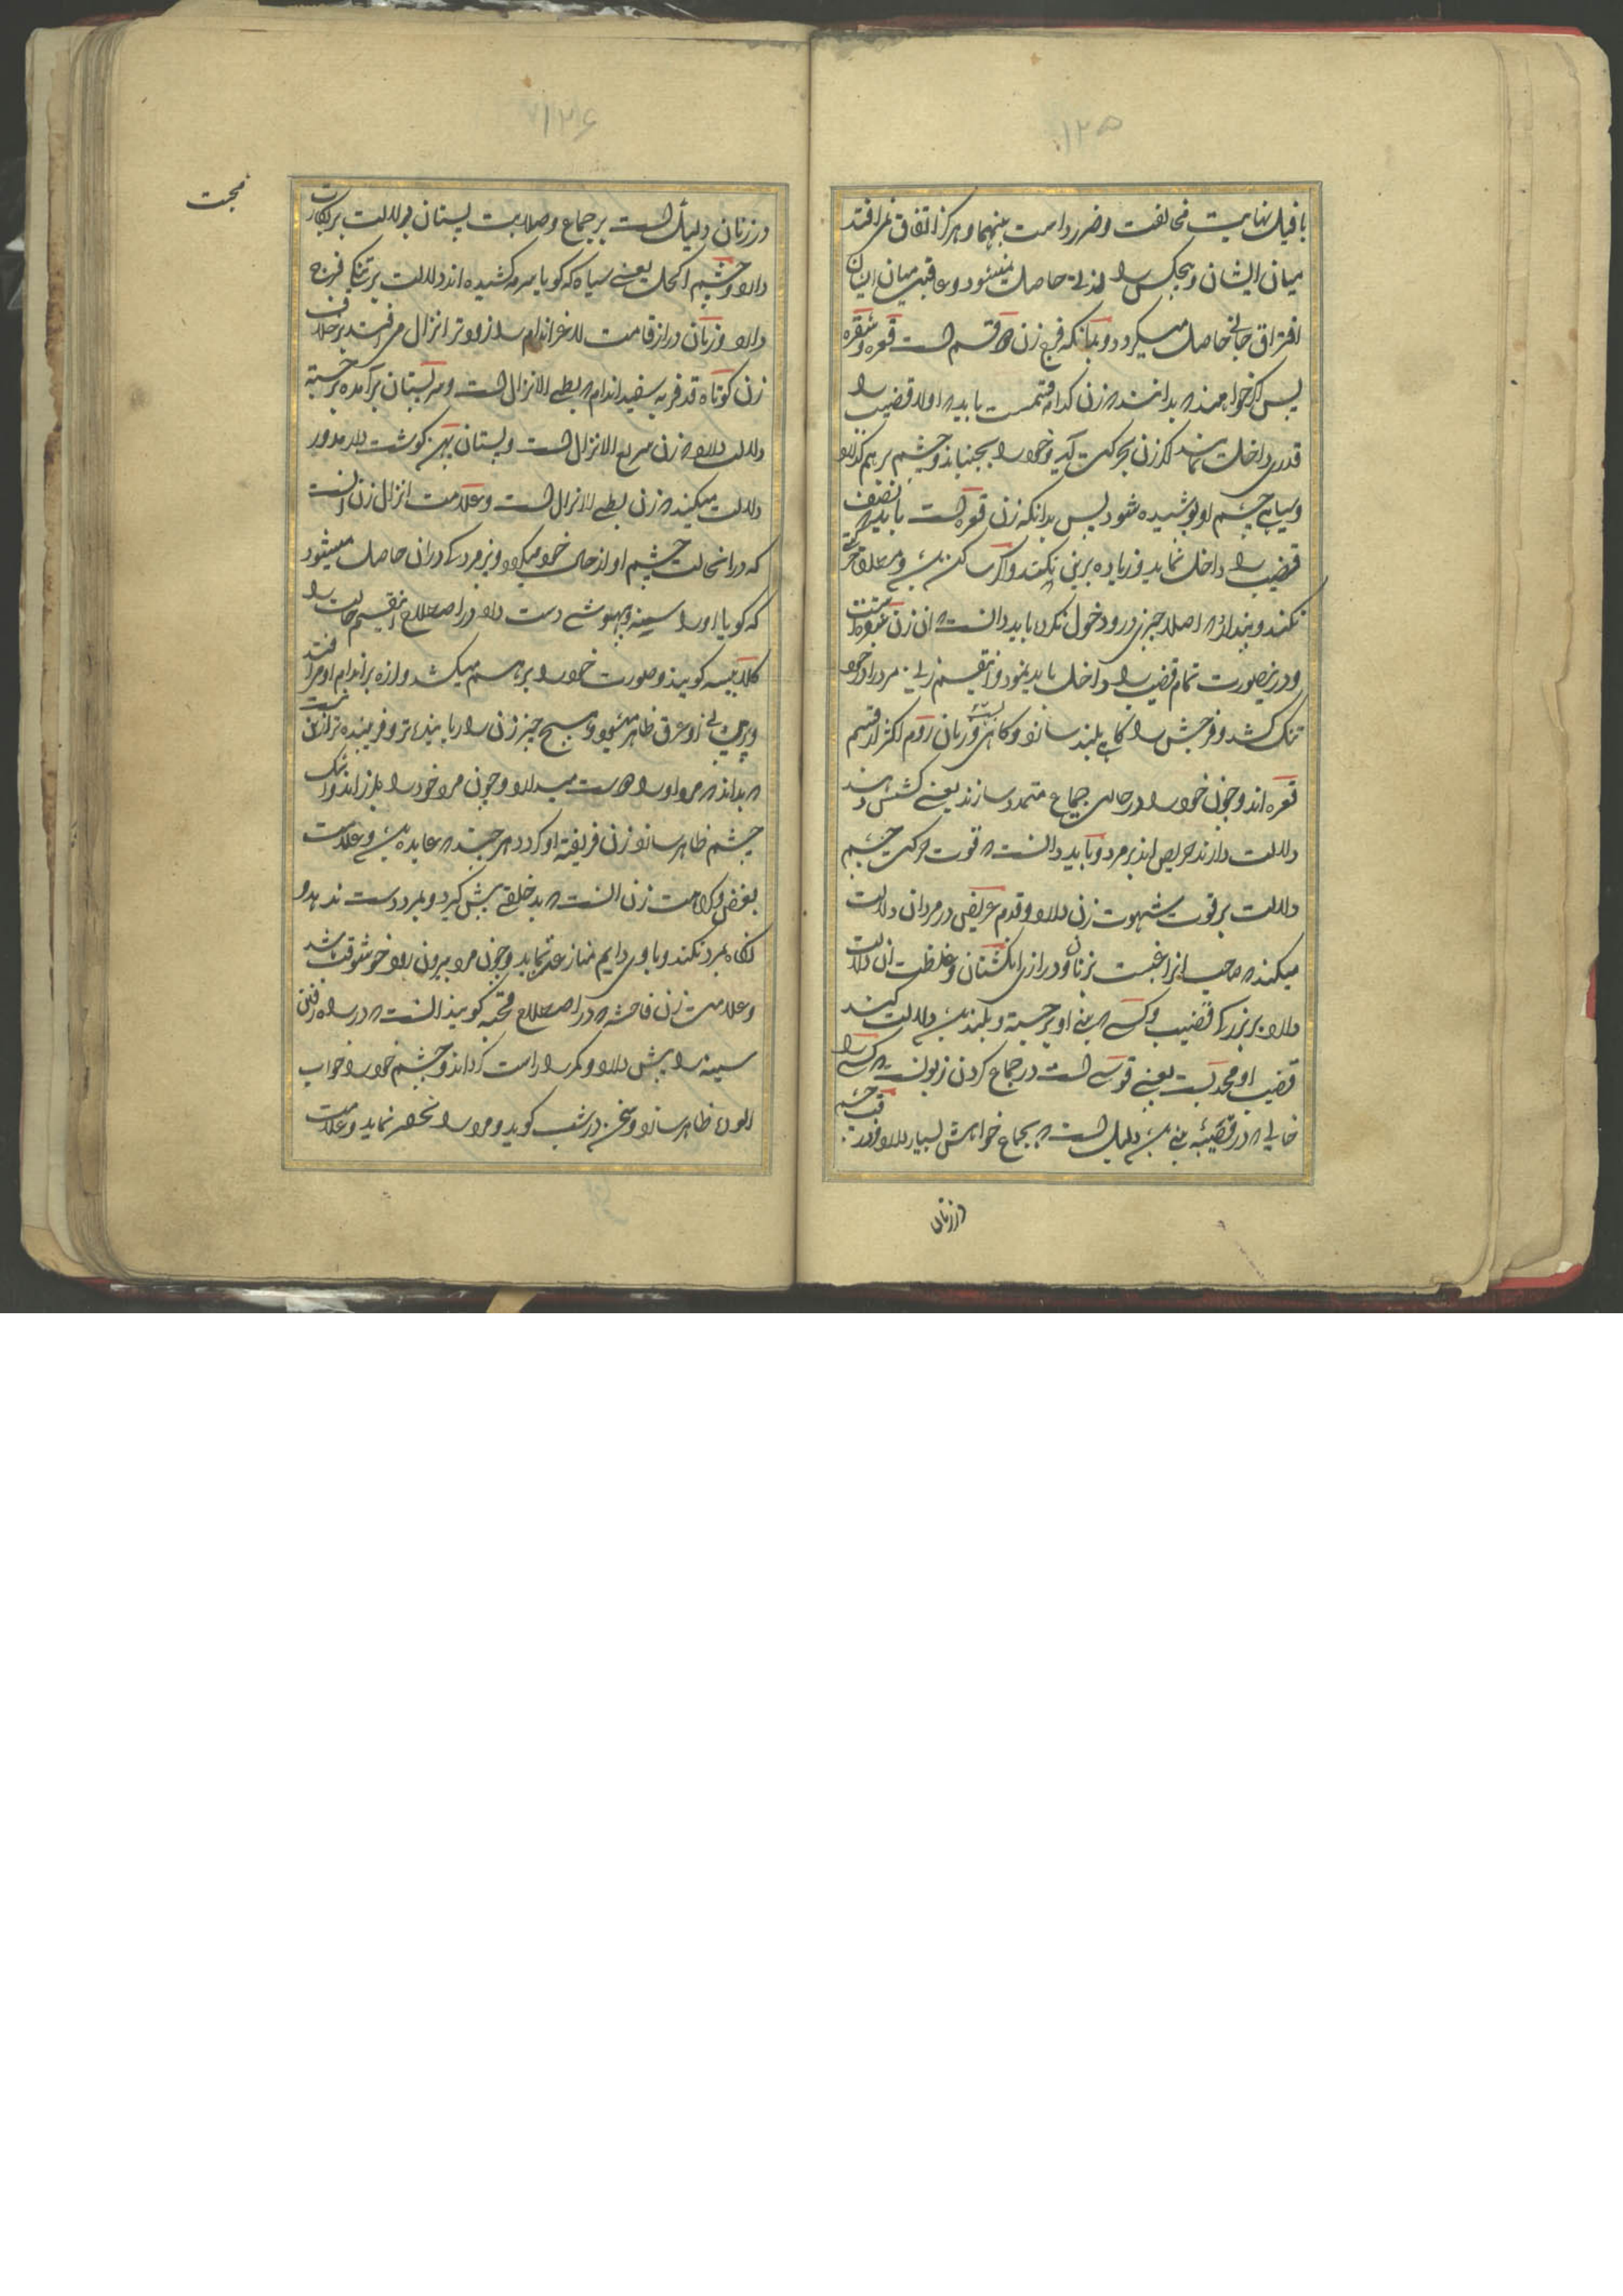 ۱۲۵
با فیل نهایت مخالفت و ضرر است بینهما و هرگز اتفاق نمی افتد
میان ایشان و هیچکس را لذتی حاصل نمیشود و عاقبت میان ایشان
افتراق حاصل میگردد و بدانکه فرج زن دو قسم است قعره و شفره
پس اگر خواهند که بدانند که زن کدام قسمست باید که اولا قضیب را
قدری داخل نماید اگر زن بحرکت آید و خود را بجنباند و چشم برهم گذارد
و سیاهی چشم او پوشیده شود پس بدانکه زن قعره است باید که نصف
قضیب را داخل نماید و زیاده برین نکند و اگر ساکن باشد و مطلق حرکتی
نکند و پندارد که اصلا چیزی درو دخول نکرده باید دانست که آن زن شفره است
و درینصورت تمام قضیب را داخل باید نمود و اینقسم زنی مرد را در خود
تنک کشد و فرجش را گاهی بلند سازد و گاهی پست و زنان روم اکثر از قسم
قعره اند و چون خود را در حال جماع متمدد سازند یعنی کشش دهند
دلالت دارند حریص اند بر مرد و باید دانست که قوت حرکت چشم
دلالت بر قوت شهوت زن دارد و قدم عریض در مردان دلالت
میکند که صاحب آنرا رغبت بزنان و درازی انگشتان و غلظت آن دلالت
دارد بر بزرگی قضیب و کسی که بینی او برجسته و بلند باشد دلالت کند
قضیب او محدبست یعنی قوسی است در جماع کردن زبونست که کسی را
خالی که در قصبه بینی باشد دلیل است که بجماع خواهش بسیار دارد و زردی چشم
در زنان
۱۲۶
محبت
در زنان دلیل است بر جماع و صلابت پستان دلالت بر بکارت
دارد و چشم اکحل یعنی سیاه که گویا سرمه کشیده اند دلالت بر تنگی فرج
دارد و زنان دراز قامت لاغر اندام را زودتر انزال می افتد بر خلاف
زن کوتاه قد فربه سفید اندام که بطی الانزال است و سر پستان برآمده برجسته
دلالت دارد که زن سریع الانزال است و پستان پهن گوشت دار مدور
دلالت میکند که زن بطی الانزال است و علامت انزال زن آنست
که در انحالت چشم او از حال خود میگردد و نیز مردی در آن حاصل میشود
که گویا او را سینه و بیهوشی دست داد در اصطلاح اینقسم حالت را
کلابیسه گویند و صورت خود را برهم میکشد و لرزه بر اندام او می افتد
و پیشانی او عرق ظاهر میشود و هیچ چیز زن را رباینده تر و فریبنده تر ازین نیست
که بداند که مرد او را دوست میدارد و چون مرد خود را بلرزاند و اشک
چشم ظاهر سازد زن فریفته او گردد هر چند که عابده باشد و علامت
بغض و کراهت زن آنست که بدخلقی پیش گیرد و بمرد دست ندهد و
نگاه بمرد نکند و با وی دایم منازعت نماید و چون مرد بیرون رود خوشوقت باشد
و علامت زن فاحشه که در اصطلاح قحبه گویند آنست که در راه رفتن
سینه را پیش دارد و کمر را راست گرداند و چشم خود را خواب
آلوده ظاهر سازد و سخن در شب گوید و مرد را نحصر نماید و علامت